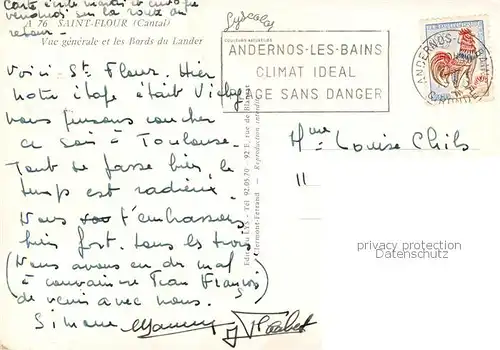 Carte écrite mardi et
vendredi sur la route du
retour -
A 76 SAINT-FLOUR (Cantal)
Vue générale et les Bords du Lander
Voici St Flour. Hier
notre étape était Vichy
nous pensons coucher
ce soir à Toulouse.
Tout se passe bien, le
temps est radieux.
Nous t'embrassons
bien fort. tous les trois
(Nous avons eu du mal
à convaincre Jean François
de venir avec nous.)
Simone
ANDERNOS-LES-BAINS
CLIMAT IDEAL
AGE SANS DANGER
ANDERNOS
GIRONDE
Mme Louise Chils
11
Editions LYS - Tél 92.05.70 - 92 B, rue de Blanzat
Clermont-Ferrand - Reproduction interdite
privacy protection
Datenschutz